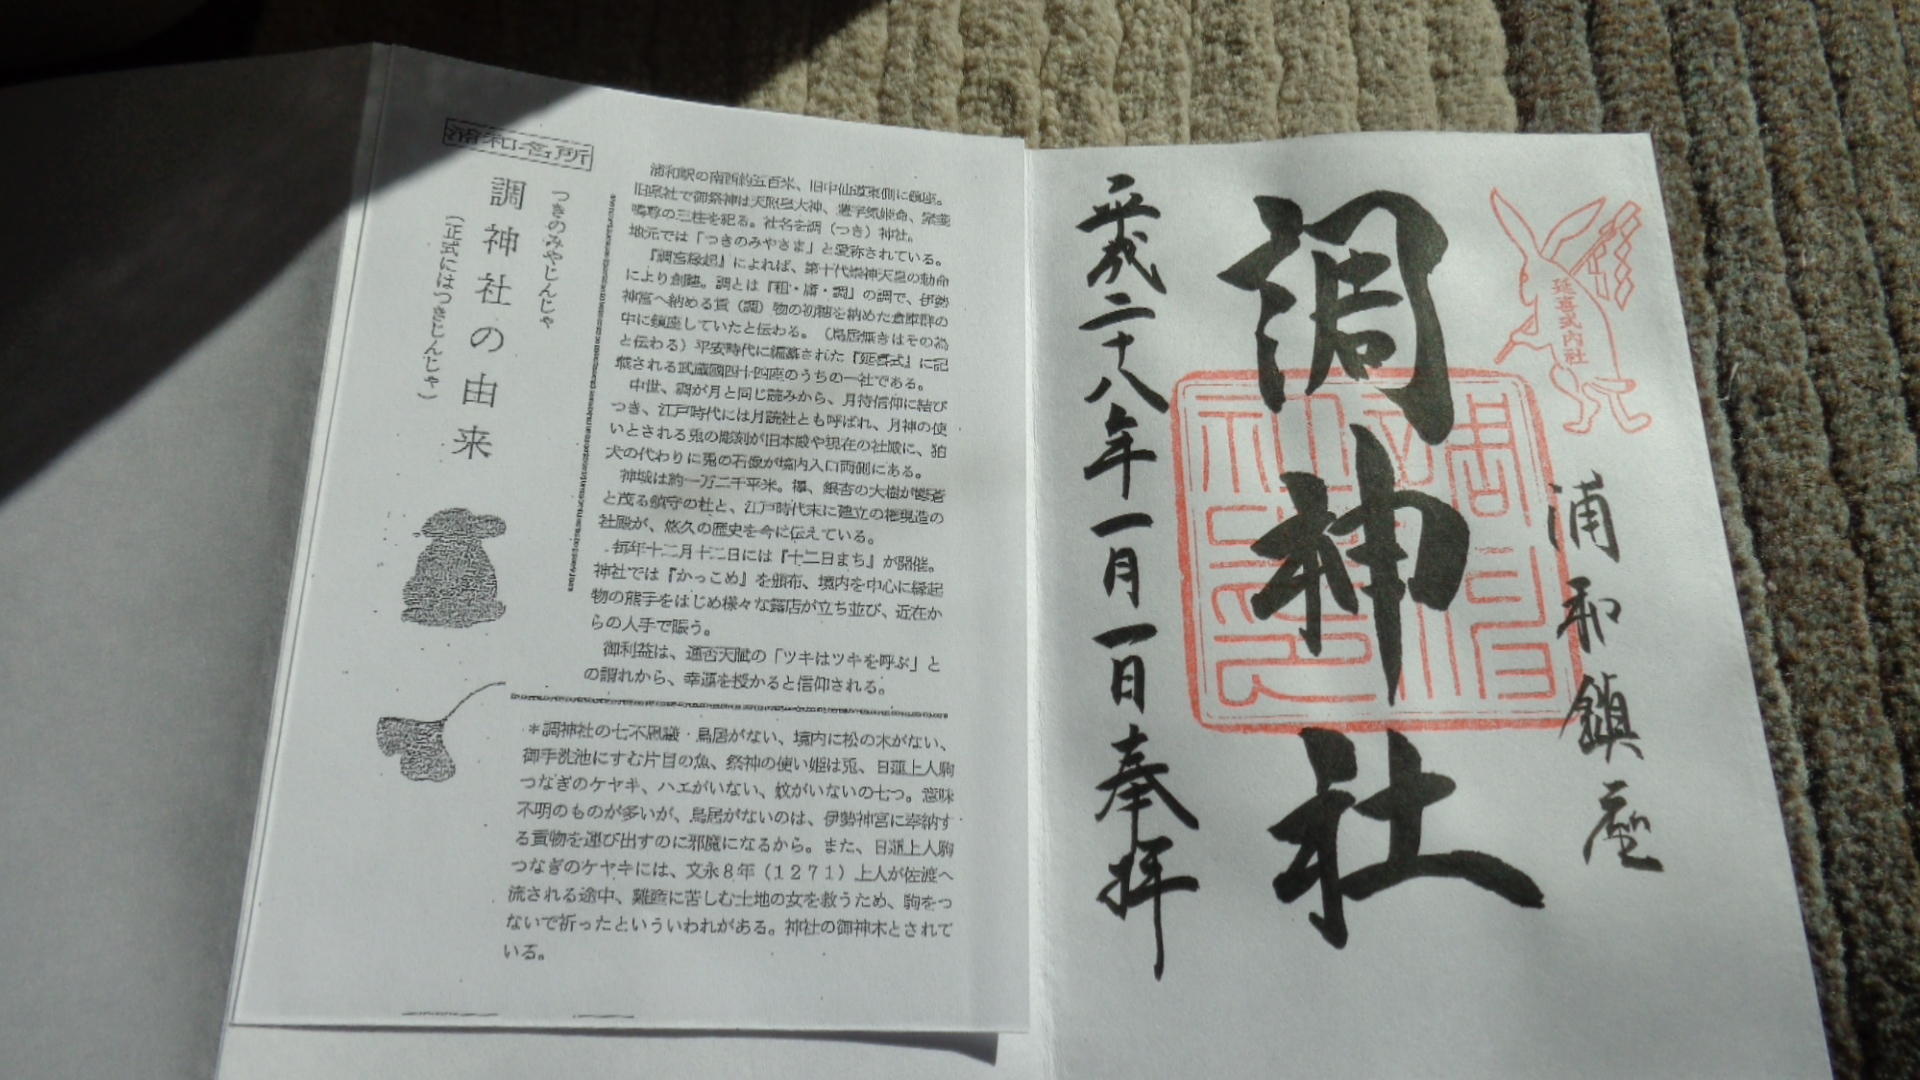 浦和名所
つきのみやじんじゃ
調神社の由来
(正式にはつきじんじゃ)
浦和駅の南西約五百米、旧中仙道東側に鎮座。
旧県社で御祭神は天照皇大神、豊宇気姫命、素戔
嗚尊の三柱を祀る。社名を調(つき)神社。
地元では「つきのみやさま」と愛称されている。
『調宮縁起』によれば、第十代崇神天皇の勅命
により創建。調とは『租・庸・調』の調で、伊勢
神宮へ納める貢(調)物の初穂を納めた倉庫群の
中に鎮座していたと伝わる。(鳥居無きはその為
と伝わる)平安時代に編纂された『延喜式』に記
載される武蔵國四十四座のうちの一社である。
中世、調が月と同じ読みから、月待信仰に結び
つき、江戸時代には月読社とも呼ばれ、月神の使
いとされる兎の彫刻が旧本殿や現在の社殿に、狛
犬の代わりに兎の石像が境内入口両側にある。
神域は約一万二千平米。欅、銀杏の大樹が鬱蒼
と茂る鎮守の杜と、江戸時代末に建立の権現造の
社殿が、悠久の歴史を今に伝えている。
毎年十二月十二日には『十二日まち』が開催。
神社では『かっこめ』を頒布、境内を中心に縁起
物の熊手をはじめ様々な露店が立ち並び、近在か
らの人手で賑う。
御利益は、運否天賦の「ツキはツキを呼ぶ」と
の謂れから、幸運を授かると信仰される。
＊調神社の七不思議・鳥居がない、境内に松の木がない、
御手洗池にすむ片目の魚、祭神の使い姫は兎、日蓮上人駒
つなぎのケヤキ、ハエがいない、蚊がいないの七つ。意味
不明のものが多いが、鳥居がないのは、伊勢神宮に奉納す
る貢物を運び出すのに邪魔になるから。また、日蓮上人駒
つなぎのケヤキには、文永８年（１２７１）上人が佐渡へ
流される途中、難産に苦しむ土地の女を救うため、駒をつ
ないで祈ったといういわれがある。神社の御神木とされて
いる。
延喜式内社
浦和鎮座
調神社
平成二十八年一月一日奉拝